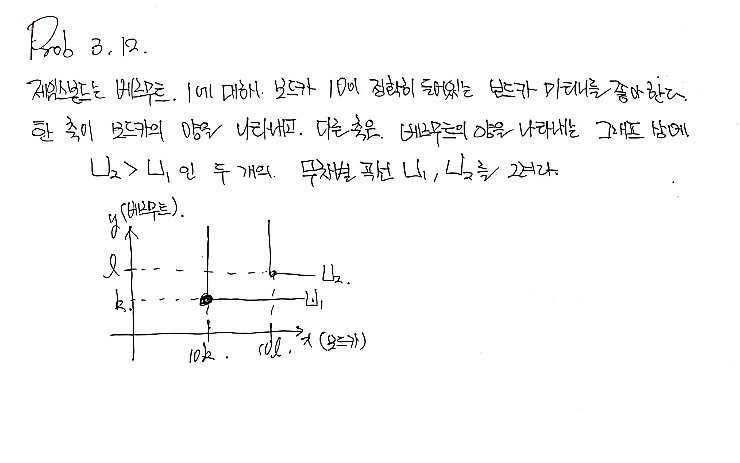 Prob 3.12.
제임스본드는 베르무트. 1에 대해서 보드카 10이 정확히 들어있는 보드카 마티니를 좋아한다.
한 축이 보드카의 양을 나타내고. 다른 축은. 베르무트의 양을 나타내는 그래프 상에
U₂ > U₁ 인 두 개의. 무차별 곡선 U₁, U₂를 그려라.
y(베르무트).
l
U₂.
k.
U₁
10k.
10l.
x (보드카)